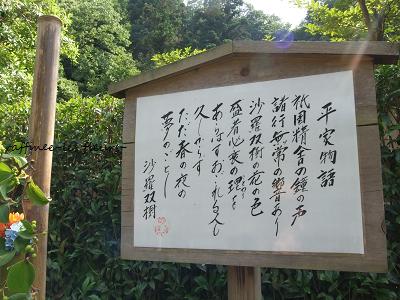 平家物語
祇園精舎の鐘の声
諸行無常の響あり
沙羅双樹の花の色
盛者必衰の理を
あらはす おごれる人も
久しからず
ただ春の夜の
夢のごとし
沙羅双樹